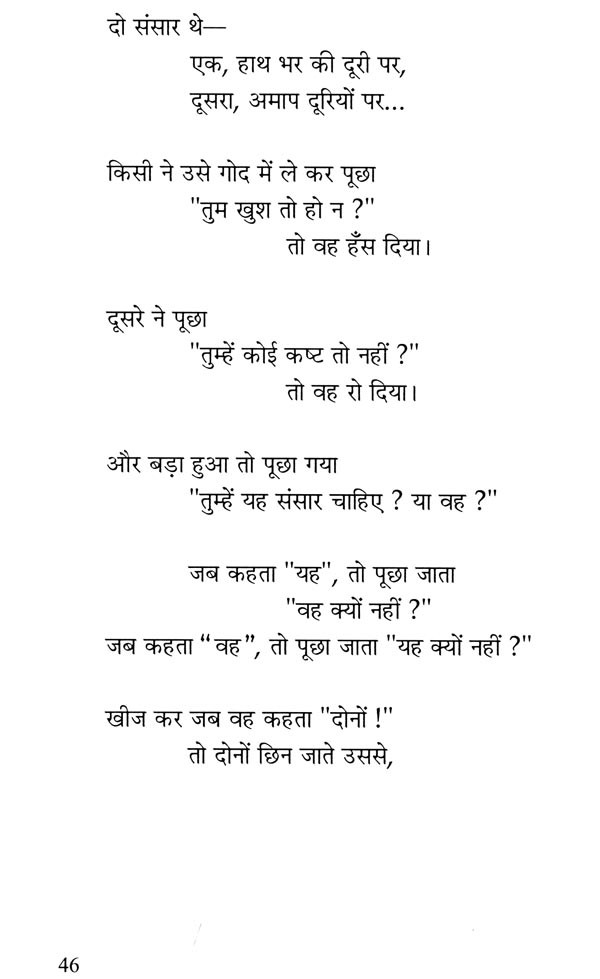 दो संसार थे—
एक, हाथ भर की दूरी पर,
दूसरा, अमाप दूरियों पर...
किसी ने उसे गोद में ले कर पूछा
"तुम खुश तो हो न ?"
तो वह हँस दिया।
दूसरे ने पूछा
"तुम्हें कोई कष्ट तो नहीं ?"
तो वह रो दिया।
और बड़ा हुआ तो पूछा गया
"तुम्हें यह संसार चाहिए ? या वह ?"
जब कहता "यह", तो पूछा जाता
"वह क्यों नहीं ?"
जब कहता “वह”, तो पूछा जाता "यह क्यों नहीं ?"
खीज कर जब वह कहता "दोनों !"
तो दोनों छिन जाते उससे,
46